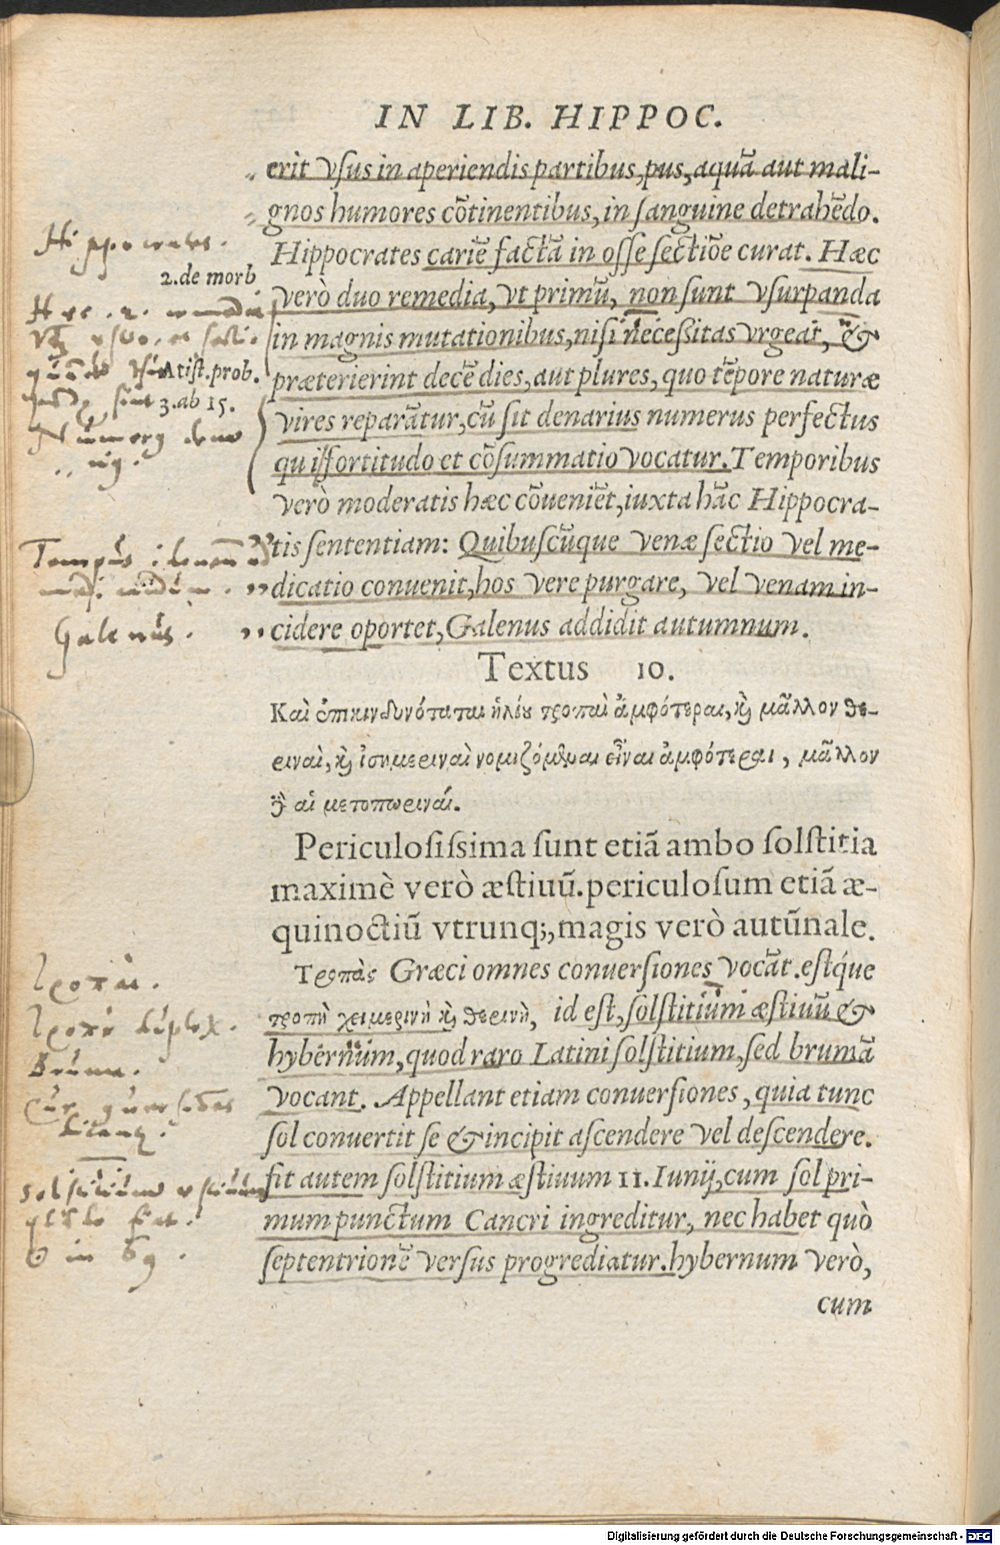 IN LIB. HIPPOC.
erit vsus in aperiendis partibus, pus, aquā aut mali-
gnos humores cōtinentibus, in sanguine detrahēdo.
Hippocrates cariē factā in osse sectiōe curat. Hæc
verò duo remedia, vt primū, non sunt vsurpanda
in magnis mutationibus, nisi necessitas vrgeat, &
præterierint decē dies, aut plures, quo tēpore naturæ
vires reparātur, cū sit denarius numerus perfectus
qui fortitudo et cōsummatio vocatur. Temporibus
verò moderatis hæc cōueniēt, iuxta hāc Hippocra-
tis sententiam: Quibuscūque venæ sectio vel me-
dicatio conuenit, hos vere purgare, vel venam in-
cidere oportet, Galenus addidit autumnum.
Hippocrates.
2. de morb
Atist. prob.
3. ab 15.
Galenus.
Textus 10.
Καὶ ἐπικινδυνόταται ἡλίου τροπαὶ ἀμφότεραι, καὶ μᾶλλον θε-
ριναὶ, καὶ ἰσημεριναὶ νομιζόμεναι εἶναι ἀμφότεραι, μᾶλλον
δὲ αἱ μετοπωριναί.
Periculosissima sunt etiā ambo solstitia
maximè verò æstiuū. periculosum etiā æ-
quinoctiū vtrunq;, magis verò autūnale.
Τροπὰς Græci omnes conuersiones vocāt. estque
τροπὴ χειμερινὴ καὶ θερινὴ, id est, solstitium æstiuū &
hybernum, quod raro Latini solstitium, sed brumā
vocant. Appellant etiam conuersiones, quia tunc
sol conuertit se & incipit ascendere vel descendere.
fit autem solstitium æstiuum 11. Iunij, cum sol pri-
mum punctum Cancri ingreditur, nec habet quò
septentrionē versus progrediatur. hybernum verò,
cum
τροπαι.
τροπη duplex.
Bruma.
Digitalisierung gefördert durch die Deutsche Forschungsgemeinschaft - DFG